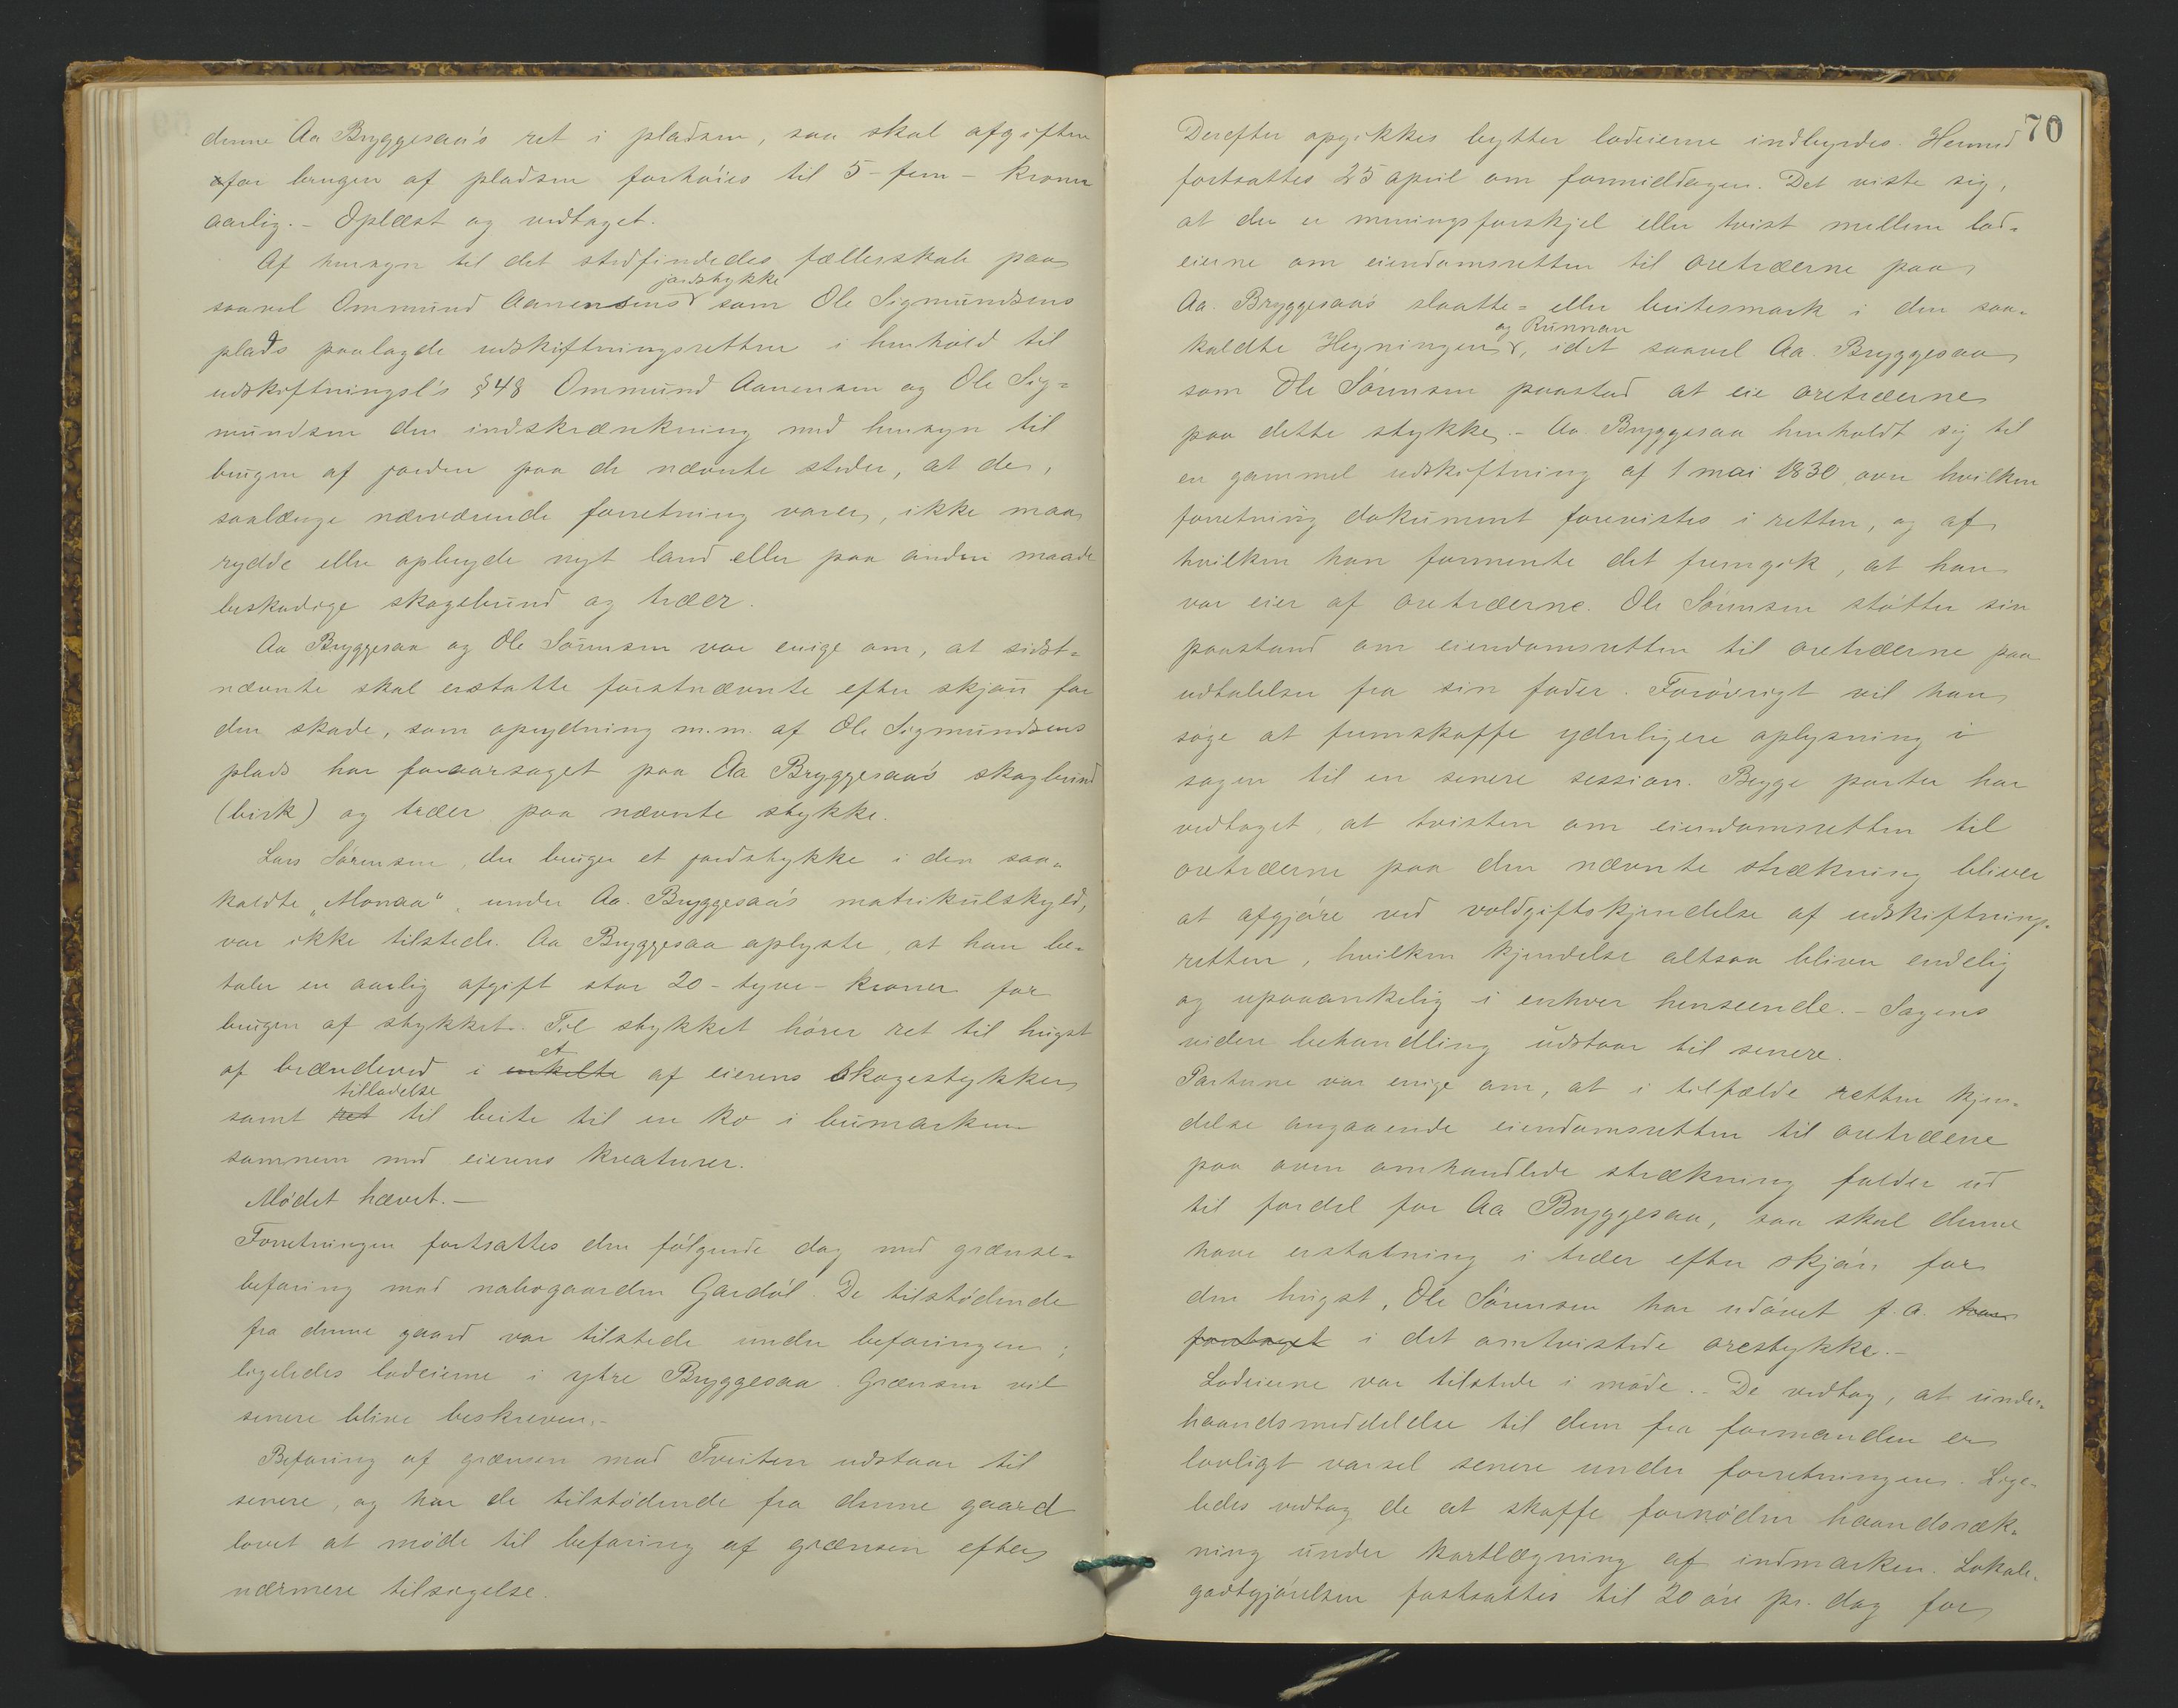 denne Aa Bryggesaa's ret i pladsen, saa skal afgiften
for brugen af pladsen forhøies til 5 - fem - kroner
aarlig. - Oplæst og vedtaget.
Af hensyn til det stedfindedes fællesskab paa
jordstykke
saavel Ommund Aanensens som Ole Sigmundsens
plads paalagde udskiftningsretten i henhold til
udskiftningsl's § 48 Ommund Aanensen og Ole Sig=
mundsen den indskrænkning med hensyn til
brugen af jorden paa de nævnte steder, at de,
saalænge nærværende forretning varer, ikke maa
rydde eller opbryde nyt land eller paa anden maade
beskadige skogbund og træer.
Aa Bryggesaa og Ole Sørensen var enige om, at sidst=
nævnte skal erstatte førstnævnte efter skjøn for
den skade, som oprydning m.m. af Ole Sigmundsens
plads har foraarsaget paa Aa Bryggesaa's skogbund
(birk) og træer paa nævnte stykke.
Lars Sørensen, der bruger et jordstykke i den saa=
kaldte "Monaa", under Aa. Bryggesaa's matrikulskyld,
var ikke tilstede. Aa Bryggesaa oplyste, at han be=
taler en aarlig afgift stor 20 - tyve - kroner for
brugen af stykket. Til stykket hører ret til hugst
et
af brændeved i enkelte af eierens skogestykker
tilladelse
samt ret til beite til en ko i bumarken
sammen med eierens kreaturer.
Mødet hævet. -
Forretningen fortsattes den følgende dag med grænse=
befaring mod nabogaarden Gardøl. De tilstødende
fra denne gaard var tilstede under befaringen;
ligeledes lodeierne i ytre Bryggesaa. Grænsen vil
senere blive beskreven. -
Befaring af grænsen mod Tveiten udstaar til
senere, og har de tilstødende fra denne gaard
lovet at møde til befaring af grænsen efter
nærmere tilsigelse.
70
Derefter opgikkes bytter lodeierne indbyrdes. Hermed
fortsattes 25 april om formiddagen. Det viste sig,
at der er meningsforskjel eller tvist mellem lod=
eierne om eiendomsretten til oretræerne paa
Aa. Bryggesaa's slaatte= eller beitesmark i den saa=
og Runnan
kaldte Hegningen, idet saavel Aa. Bryggesaa
som Ole Sørensen paastod at eie oretræerne
paa dette stykke. - Aa. Bryggesaa henholdt sig til
en gammel udskiftning af 1 mai 1830, over hvilken
forretning dokument forevistes i retten, og af
hvilken han formente det fremgik, at han
var eier af oretræerne. Ole Sørensen støtter sin
paastand om eiendomsretten til oretræerne paa
udtalelser fra sin fader. Forøvrigt vil han
søge at fremskaffe yderligere oplysning i
sagen til en senere session. Begge parter har
vedtaget, at tvisten om eiendomsretten til
oretræerne paa den nævnte strækning bliver
at afgjøre ved voldgiftskjendelse af udskiftnings=
retten, hvilken kjendelse altsaa bliver endelig
og upaaankelig i enhver henseende. - Sagens
videre behandling udstaar til senere.
Parterne var enige om, at i tilfælde rettens kjen=
delse angaaende eiendomsretten til oretræerne
paa oven omhandlede strækning falder ud
til fordel for Aa Bryggesaa, saa skal denne
have erstatning i træer efter skjøn for
den hugst, Ole Sørensen har udøvet f. a. har
foretaget i det omtvistede orestykke. -
Lodeierne var tilstede i møde. - De vedtog, at under=
haandsmeddelelse til dem fra formanden er
lovligt varsel senere under forretningen. Lige=
ledes vedtog de at skaffe fornøden haandsræk=
ning under kartlægning af indmarken. Lokale=
godtgjørelsen fastsattes til 20 øre pr. dag for